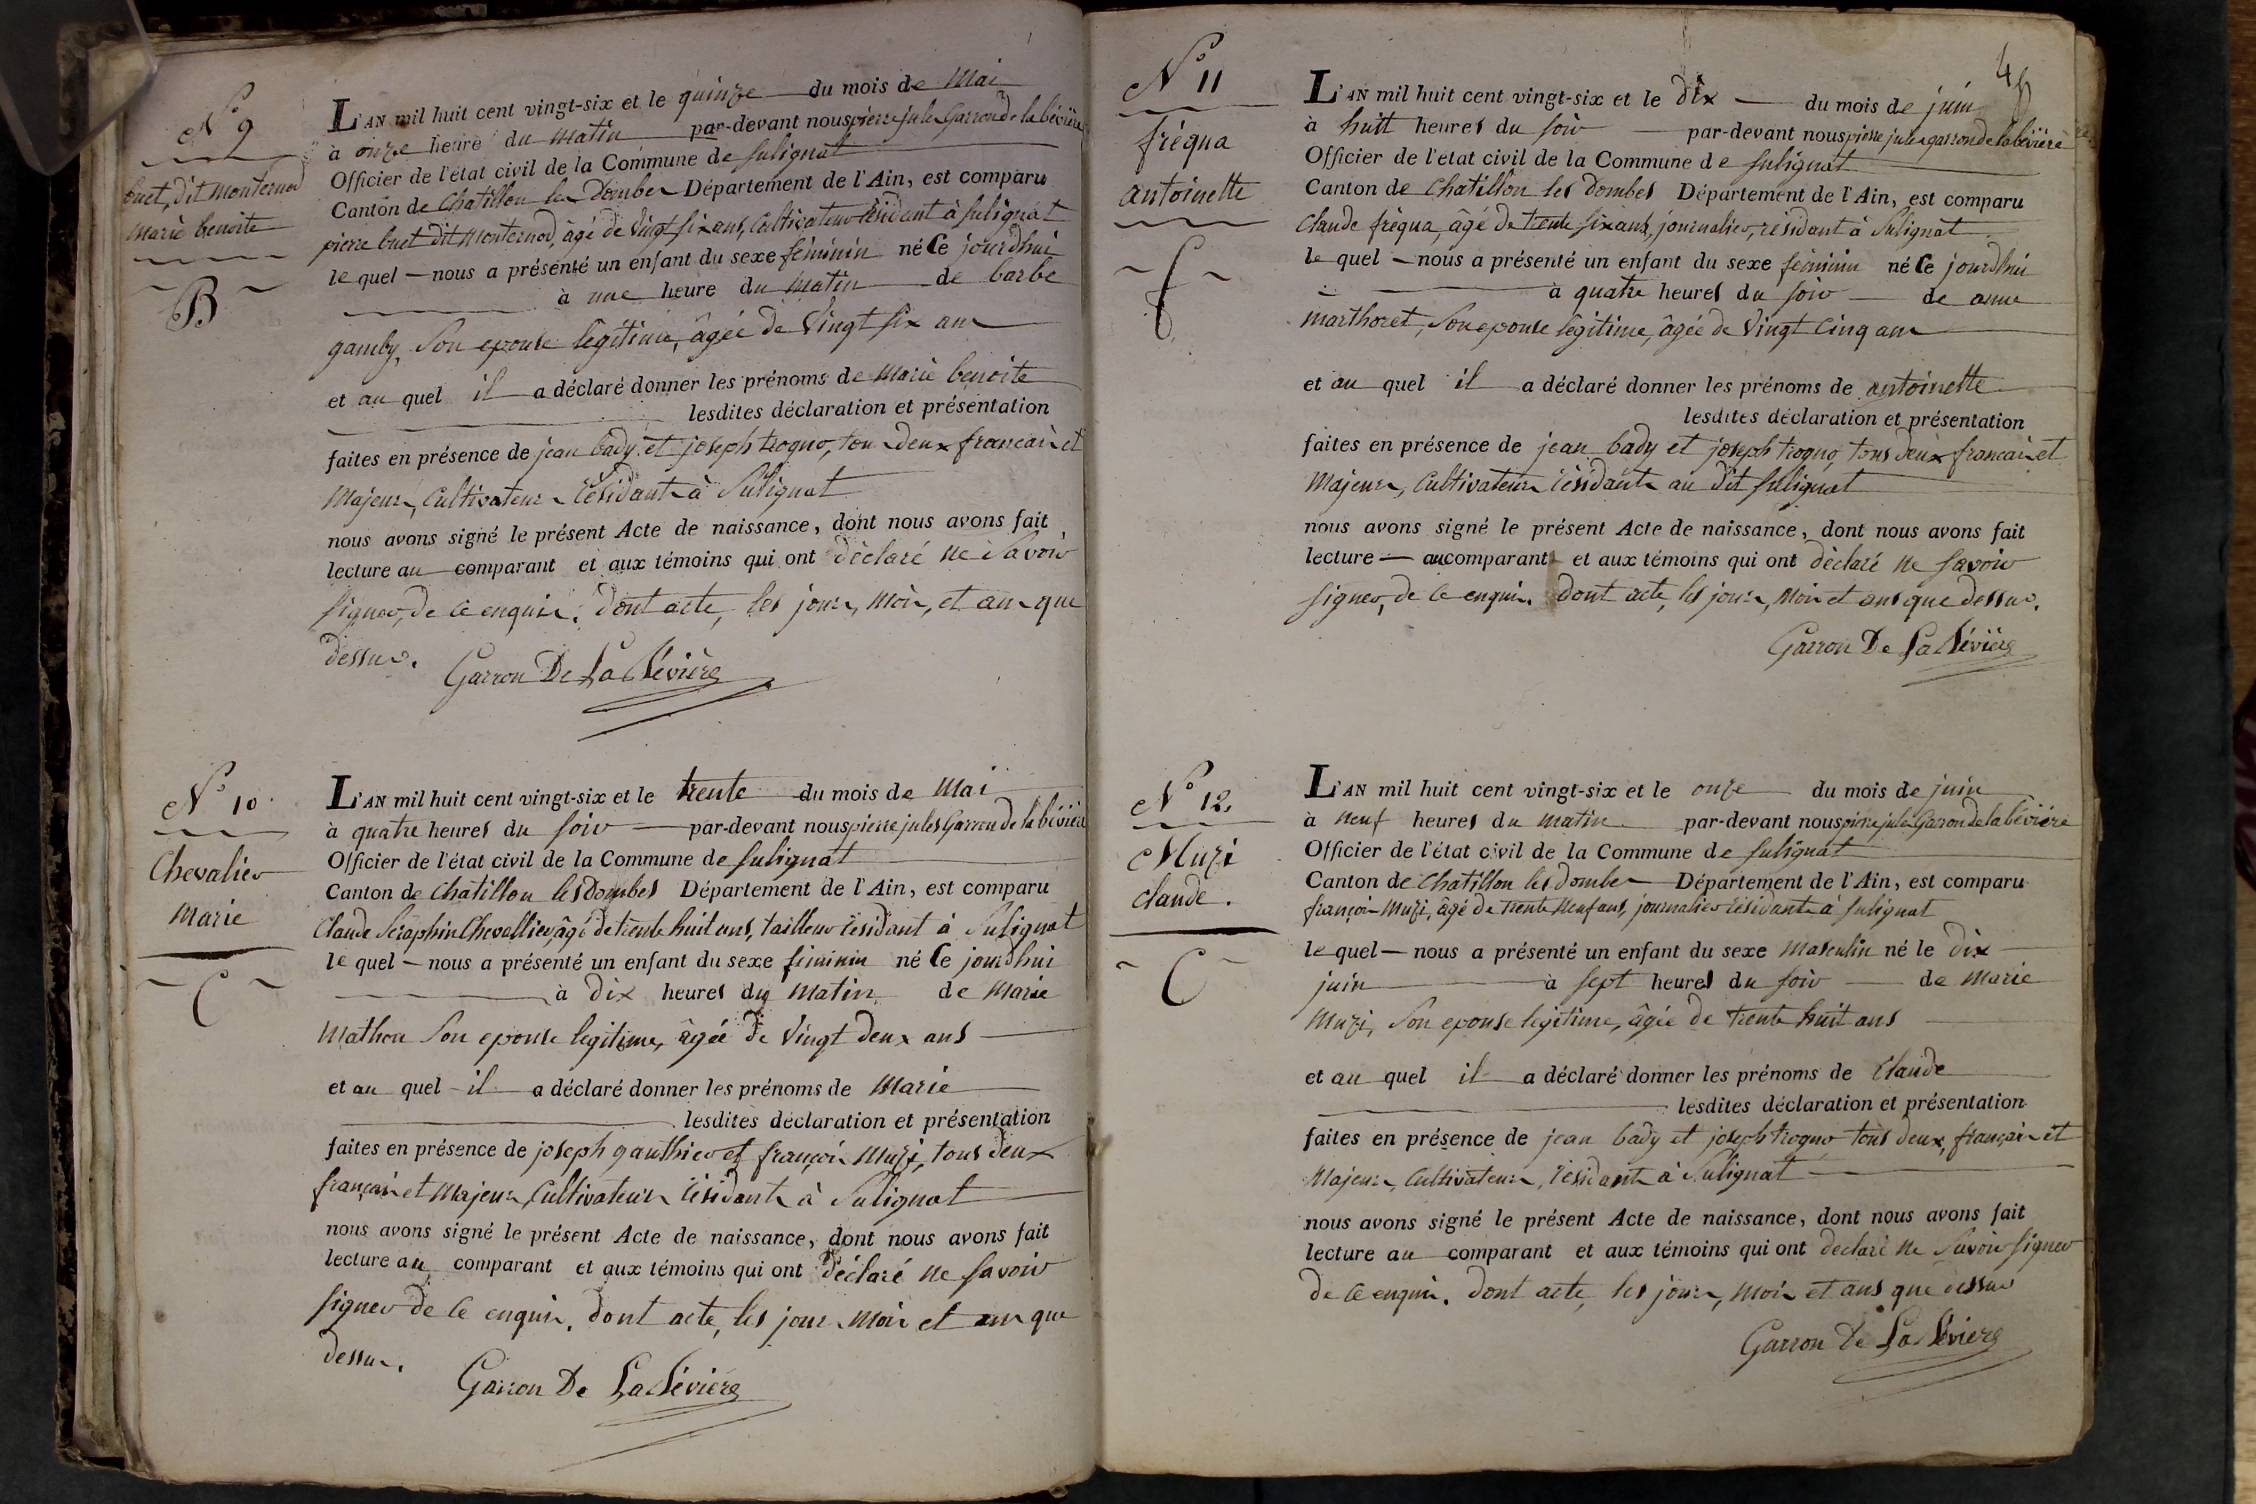 N° 9
buet, dit monternod
marie benoite
B
L'AN mil huit cent vingt-six et le quinze du mois de Mai
à onze heure du matin par-devant nous pierre jules Garron de la bévière
Officier de l'état civil de la Commune de Sulignat
Canton de Chatillon les Dombes Département de l'Ain, est comparu
pierre buet dit Monternod, âgé de vingt six ans, Cultivateur résidant à Sulignat
le quel nous a présenté un enfant du sexe féminin né Ce jourdhui
à une heure du matin de barbe
gamby, Son epouse légitime, âgée de Vingt six ans
et au quel il a déclaré donner les prénoms de Marie benoite
lesdites déclaration et présentation
faites en présence de jean bady et joseph trogno, tous deux francais et
Majeurs, Cultivateurs résidants à Sulignat
nous avons signé le présent Acte de naissance, dont nous avons fait
lecture au comparant et aux témoins qui ont déclaré ne Savoir
signer, de Ce enquis. Dont acte, les jour, Mois, et an que
dessus.
Garron De La Bévière
N° 10
Chevalier
Marie
C
L'AN mil huit cent vingt-six et le trente du mois de Mai
à quatre heures du soir par-devant nous pierre jules Garron de la bévière
Officier de l'état civil de la Commune de Sulignat
Canton de Chatillon les Dombes Département de l'Ain, est comparu
Claude Séraphin Chevallier, âgé de trente huit ans, tailleur résidant à Sulignat
le quel nous a présenté un enfant du sexe féminin né Ce jourdhui
à Dix heures du Matin de Marie
Mathon Son epouse legitime, âgée de Vingt deux ans
et au quel il a déclaré donner les prénoms de Marie
lesdites déclaration et présentation
faites en présence de joseph gauthier et françois Muzi, tous deux
français et Majeurs, Cultivateurs résidants à Sulignat
nous avons signé le présent Acte de naissance, dont nous avons fait
lecture au comparant et aux témoins qui ont déclaré ne savoir
signer de Ce enquis. Dont acte, les jour Mois et an que
dessus.
Garron De La Bévière
N° 11
fréqua
antoinette
f
L'AN mil huit cent vingt-six et le dix du mois de juin
à huit heures du soir par-devant nous pierre jules garron de la bévière
Officier de l'état civil de la Commune de Sulignat
Canton de Chatillon les Dombes Département de l'Ain, est comparu
Claude fréqua, âgé de trente six ans, journalier, résidant à Sulignat
le quel nous a présenté un enfant du sexe féminin né Ce jourdhui
à quatre heures du soir de anne
marthoret, Son epouse légitime, âgée de Vingt Cinq ans
et au quel il a déclaré donner les prénoms de antoinette
lesdites déclaration et présentation
faites en présence de jean bady et joseph trogno, tous deux francais et
Majeurs, Cultivateurs résidants au dit Sulignat
nous avons signé le présent Acte de naissance, dont nous avons fait
lecture au comparant et aux témoins qui ont déclaré ne savoir
signer, de Ce enquis. Dont acte, les jour, Mois et ans que dessus.
Garron De La Bévière
N° 12
Muzi
claude.
C
L'AN mil huit cent vingt-six et le onze du mois de juin
à Neuf heures du matin par-devant nous pierre jules Garron de la bévière
Officier de l'état civil de la Commune de Sulignat
Canton de Chatillon les dombes Département de l'Ain, est comparu
françois Muzi, âgé de trente Neuf ans, journalier résidant à Sulignat
le quel nous a présenté un enfant du sexe Masculin né le Dix
juin à sept heures du soir de Marie
Muzi, Son epouse legitime, âgée de trente huit ans
et au quel il a déclaré donner les prénoms de Claude
lesdites déclaration et présentation
faites en présence de jean bady et joseph trogno tous deux, français et
Majeurs, Cultivateurs, résidants à Sulignat
nous avons signé le présent Acte de naissance, dont nous avons fait
lecture au comparant et aux témoins qui ont déclaré ne Savoir signer
de Ce enquis. Dont acte, les jour, Mois et ans que dessus
Garron De La Bévière